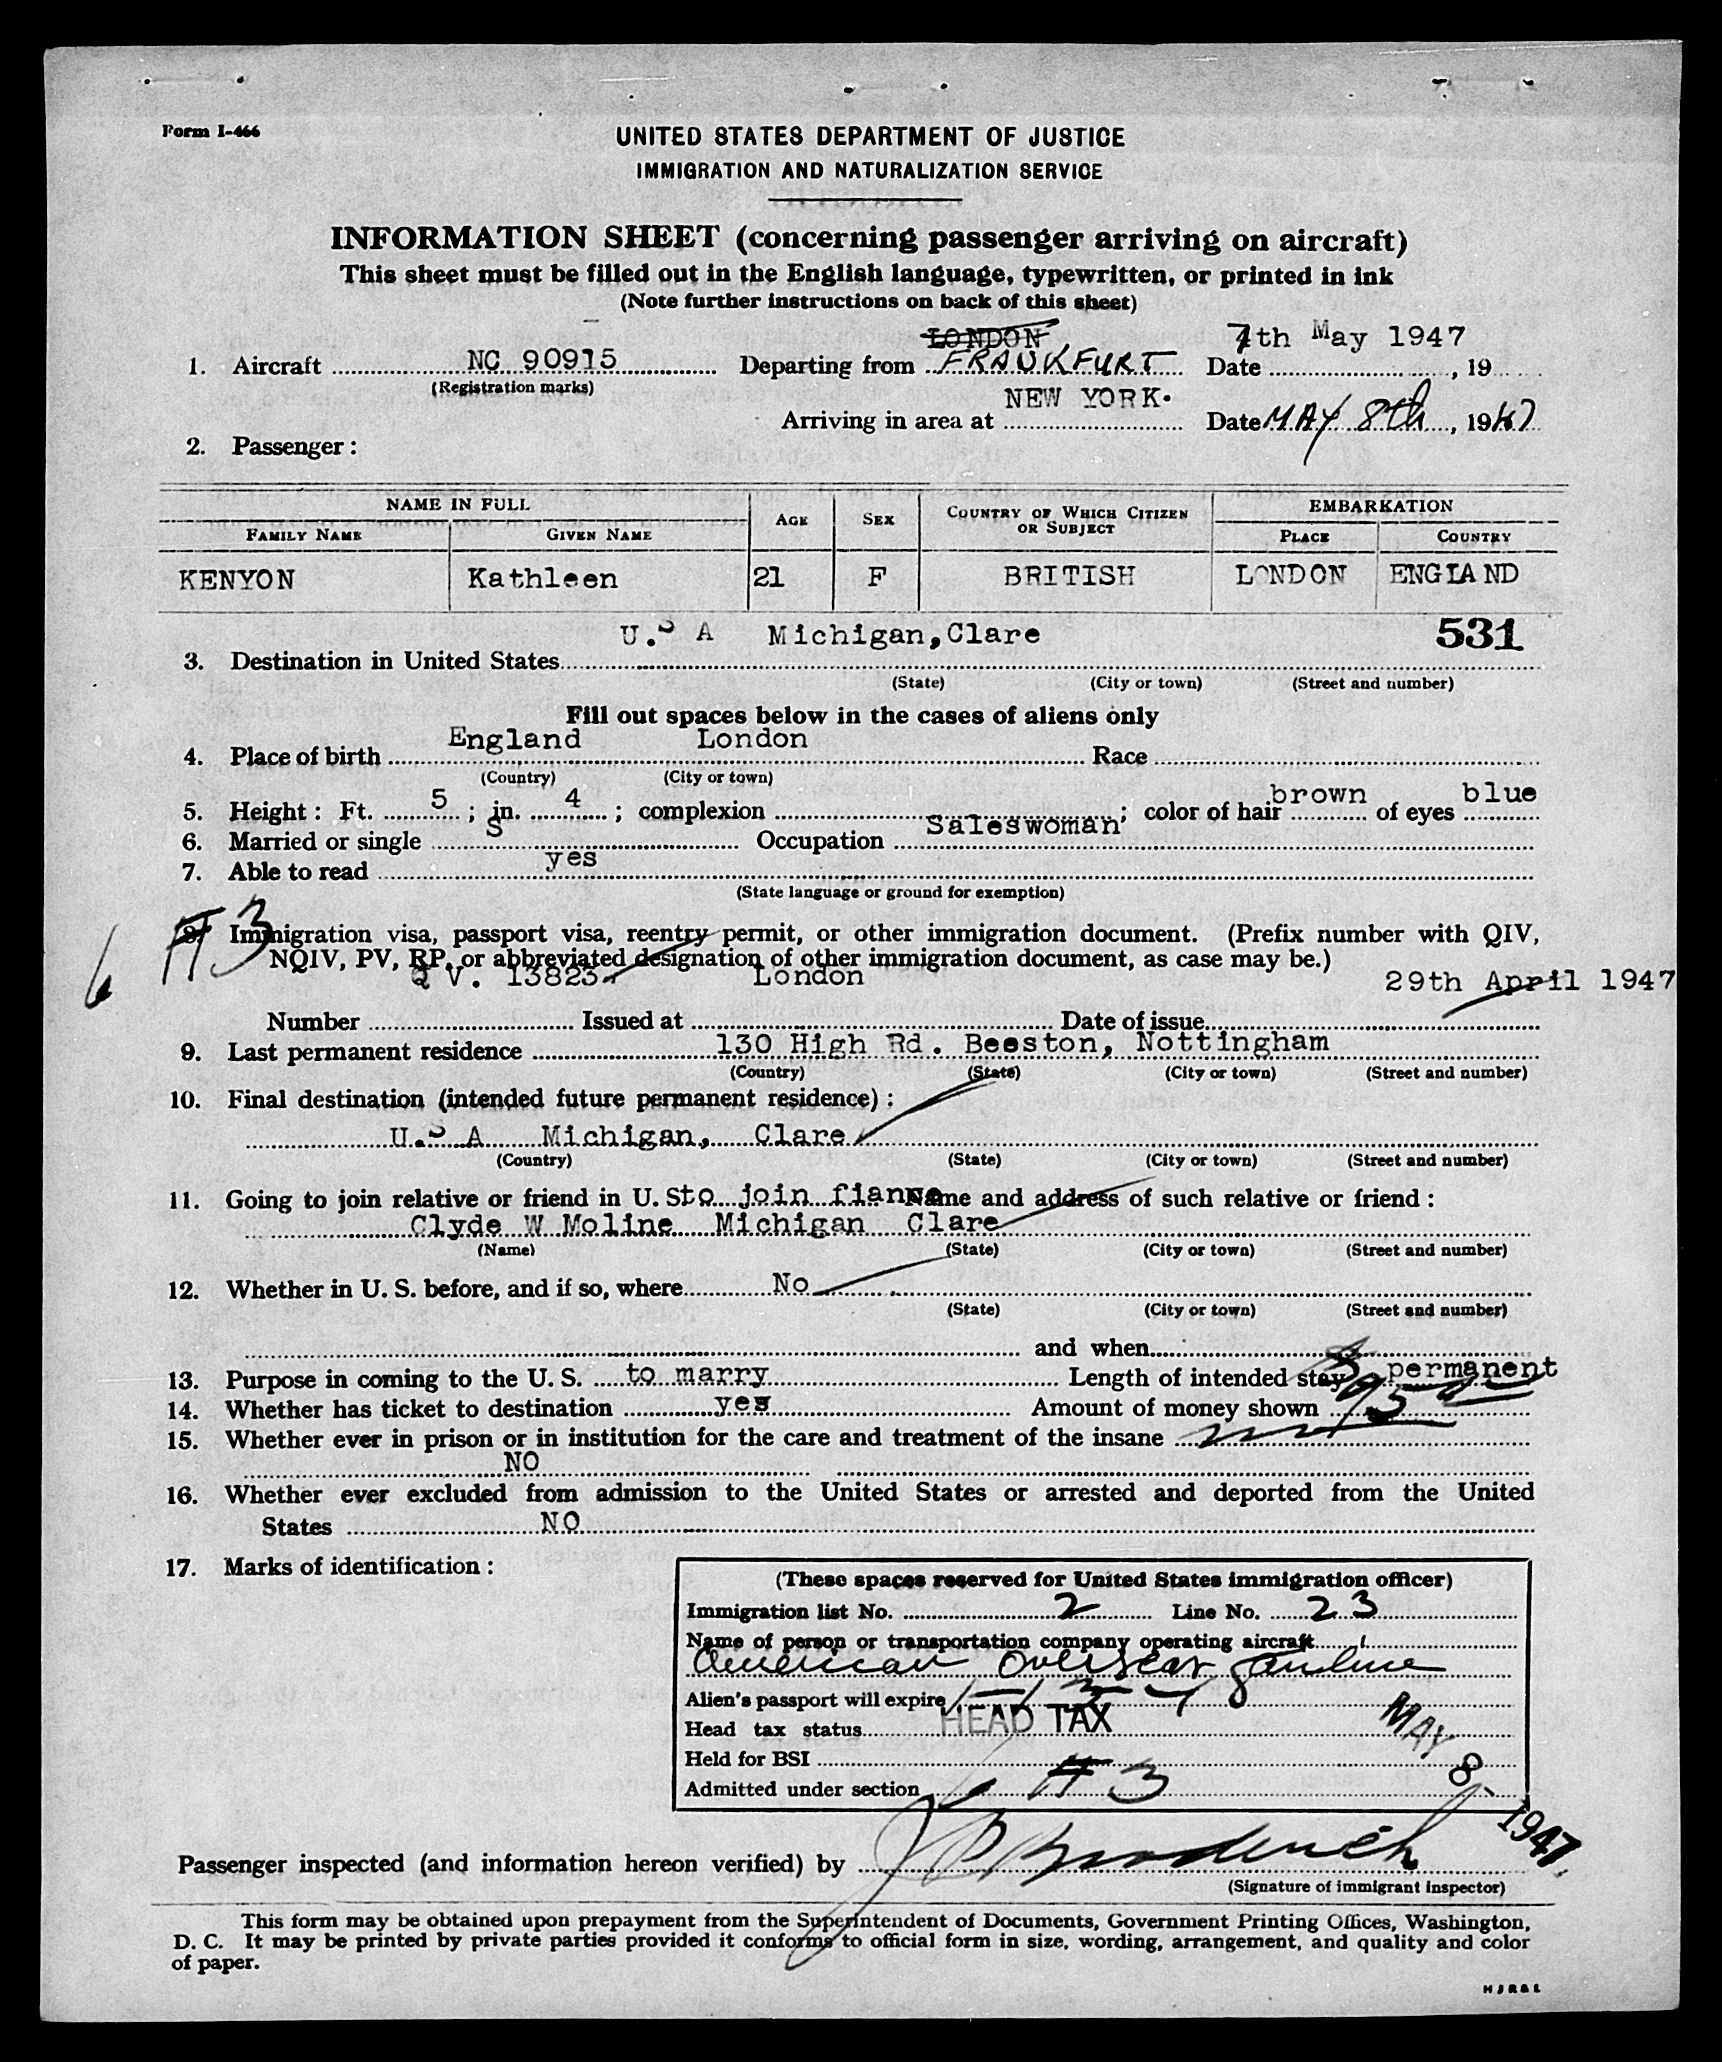 Form I-466
UNITED STATES DEPARTMENT OF JUSTICE
IMMIGRATION AND NATURALIZATION SERVICE
INFORMATION SHEET (concerning passenger arriving on aircraft)
This sheet must be filled out in the English language, typewritten, or printed in ink
(Note further instructions on back of this sheet)
LONDON 7th May 1947
1. Aircraft NC 90915 Departing from FRANKFURT Date , 19
(Registration marks)
NEW YORK.
Arriving in area at Date MAY 8th, 1947
2. Passenger :
NAME IN FULL AGE SEX COUNTRY OF WHICH CITIZEN OR SUBJECT EMBARKATION
FAMILY NAME GIVEN NAME PLACE COUNTRY
KENYON Kathleen 21 F BRITISH LONDON ENGLAND
U.S A Michigan,Clare 531
3. Destination in United States
(State) (City or town) (Street and number)
Fill out spaces below in the cases of aliens only
England London
4. Place of birth Race
(Country) (City or town)
5. Height : Ft. 5 ; in. 4 ; complexion ; color of hair brown of eyes blue
6. Married or single S Occupation Saleswoman
7. Able to read yes
(State language or ground for exemption)
6 #3
8. Immigration visa, passport visa, reentry permit, or other immigration document. (Prefix number with QIV,
NQIV, PV, RP, or abbreviated designation of other immigration document, as case may be.)
Q V. 13823 London 29th April 1947
Number Issued at Date of issue
9. Last permanent residence 130 High Rd. Beeston, Nottingham
(Country) (State) (City or town) (Street and number)
10. Final destination (intended future permanent residence) :
U.S A Michigan, Clare
(Country) (State) (City or town) (Street and number)
11. Going to join relative or friend in U. S. to join fiance Name and address of such relative or friend :
Clyde W Moline Michigan Clare
(Name) (State) (City or town) (Street and number)
12. Whether in U. S. before, and if so, where No
(State) (City or town) (Street and number)
and when
13. Purpose in coming to the U. S. to marry Length of intended stay permanent
14. Whether has ticket to destination yes Amount of money shown
15. Whether ever in prison or in institution for the care and treatment of the insane
NO
16. Whether ever excluded from admission to the United States or arrested and deported from the United
States NO
17. Marks of identification :
(These spaces reserved for United States immigration officer)
Immigration list No. 2 Line No. 23
Name of person or transportation company operating aircraft
American Overseas Airline
Alien's passport will expire
Head tax status HEAD TAX
Held for BSI
Admitted under section 6 #3
MAY 8 - 1947
Passenger inspected (and information hereon verified) by
(Signature of immigrant inspector)
This form may be obtained upon prepayment from the Superintendent of Documents, Government Printing Offices, Washington,
D. C. It may be printed by private parties provided it conforms to official form in size, wording, arrangement, and quality and color
of paper.